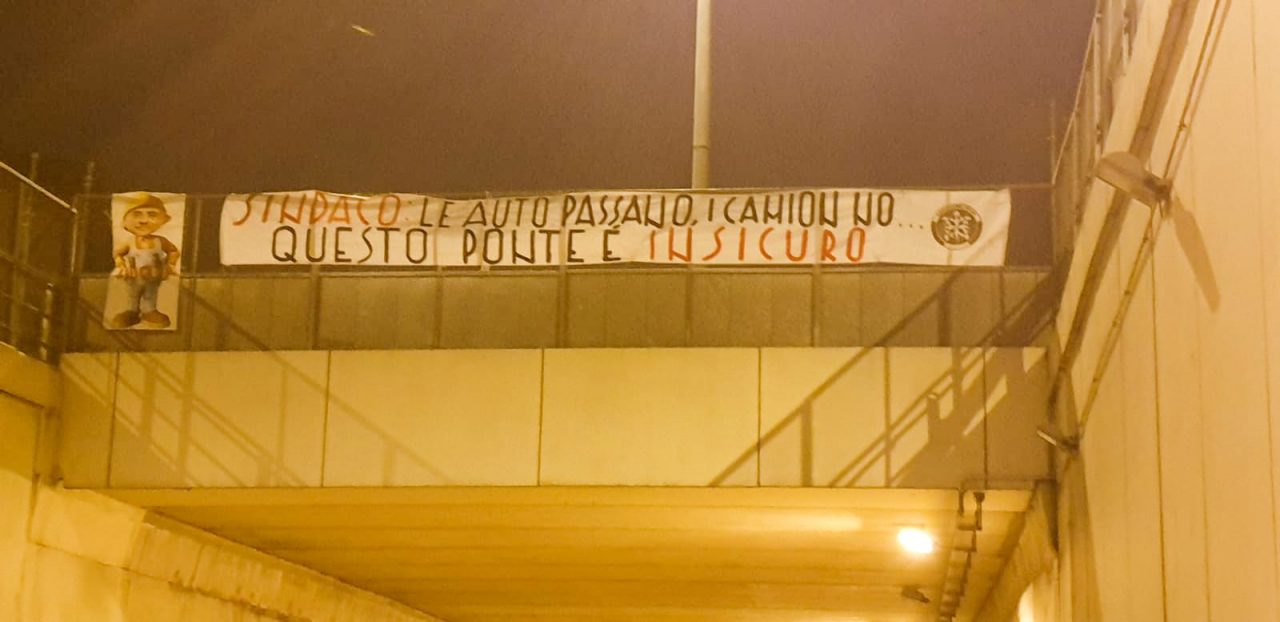 SINDACO: LE AUTO PASSANO, I CAMION NO...
QUESTO PONTE È INSICURO